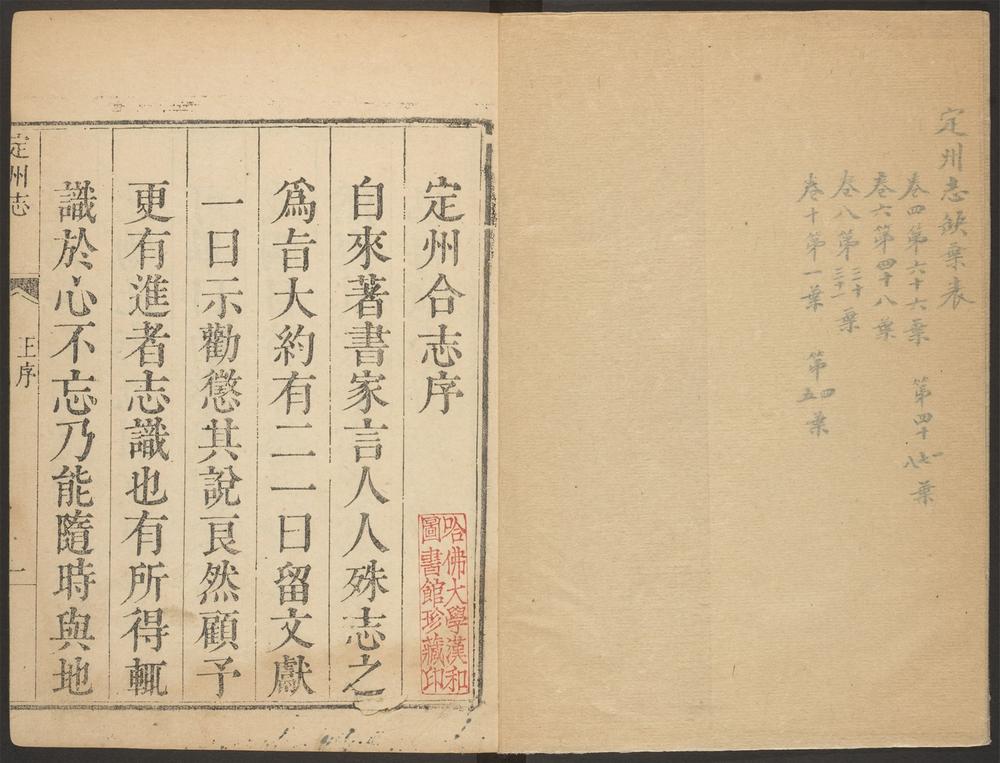 定州志缺葉表
卷四第六十六葉　第四十一七八葉
卷六第四十八葉
卷八第三十三十一葉
卷十第一葉　第四五葉
定州合志序
自來著書家言人人殊志之
爲旨大約有二一曰留文獻
一曰示勸懲其說良然顧予
更有進者志識也有所得輒
識於心不忘乃能隨時與地
哈佛大學漢和
圖書館珍藏印
定州志
王序
一